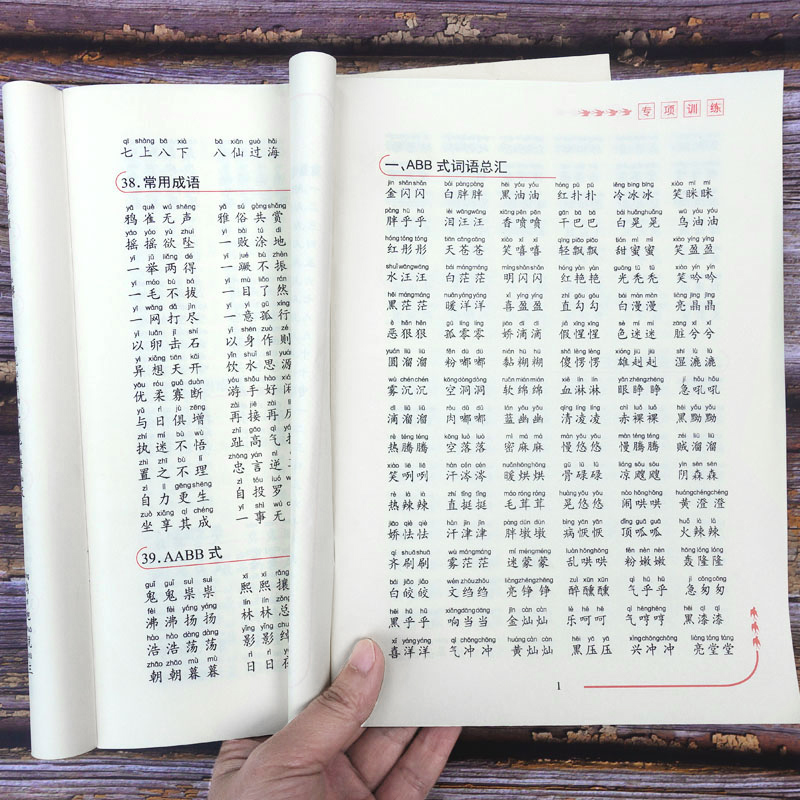 qī shàng bā xià bā xiān guò hǎi
七上八下 八仙过海
38.常用成语
yā què wú shēng yǎ sú gòng shǎng
鸦雀无声 雅俗共赏
yáo yáo yù zhuì yī bài tú dì
摇摇欲坠 一败涂地
yī jǔ liǎng dé yī jué bù zhèn
一举两得 一蹶不振
yī máo bù bá yī mù liǎo rán
一毛不拔 一目了然
yī wǎng dǎ jìn yī yì gū xíng
一网打尽 一意孤行
yǐ luǎn jī shí yǐ shēn zuò zé
以卵击石 以身作则
yì xiǎng tiān kāi yǐn shuǐ sī yuán
异想天开 饮水思源
yōu róu guǎ duàn yóu shǒu hào xián
优柔寡断 游手好闲
yǔ rì jù zēng zài jiē zài
与日俱增 再接再
zhí mí bù wù zhǐ gāo qì
执迷不悟 趾高气
zhì zhī bù lǐ zhōng yán nì
置之不理 忠言逆
zì lì gēng shēng zì tóu luó
自力更生 自投罗
zuò xiǎng qí chéng yī shì wú
坐享其成 一事无
39.AABB 式
guǐ guǐ suì suì xī xī rǎng
鬼鬼祟祟 熙熙攘
fèi fèi yáng yáng lín lín zǒng
沸沸扬扬 林林总
hào hào dàng dàng yǐng yǐng
浩浩荡荡 影影绰
zhāo zhāo mù mù rì rì
朝朝暮暮 日日
专项训练
一、ABB 式词语总汇
jīn shǎn shǎn bái pàng pàng hēi yóu yóu hóng pū pū lěng bīng bīng xiào mī mī
金闪闪 白胖胖 黑油油 红扑扑 冷冰冰 笑眯眯
pàng hū hū lèi wāng wāng xiāng pēn pēn gān bā bā bái huǎng huǎng wū yóu yóu
胖乎乎 泪汪汪 香喷喷 干巴巴 白晃晃 乌油油
hóng tōng tōng tiān cāng cāng xiào xī xī qīng piāo piāo tián mì mì xiào yíng yíng
红彤彤 天苍苍 笑嘻嘻 轻飘飘 甜蜜蜜 笑盈盈
shuǐ wāng wāng bái máng máng míng shǎn shǎn hóng yàn yàn guāng tū tū xiào yín yín
水汪汪 白茫茫 明闪闪 红艳艳 光秃秃 笑吟吟
hēi máng máng nuǎn yáng yáng xǐ yíng yíng zhí gōu gōu bái màn màn liàng jīng jīng
黑茫茫 暖洋洋 喜盈盈 直勾勾 白漫漫 亮晶晶
è hěn hěn gū líng líng jiāo dī dī jiǎ xīng xīng sè mí mí zāng xī xī
恶狠狠 孤零零 娇滴滴 假惺惺 色迷迷 脏兮兮
yuán liū liū fěn dū dū nián hū hū shǎ lèng lèng xióng jiū jiū shī lù lù
圆溜溜 粉嘟嘟 黏糊糊 傻愣愣 雄赳赳 湿漉漉
wù chén chén kōng dòng dòng ruǎn mián mián xiě lín lín yǎn zhēng zhēng jí hǒu hǒu
雾沉沉 空洞洞 软绵绵 血淋淋 眼睁睁 急吼吼
dī liū liū ròu dū dū lán yōu yōu qīng líng líng chì luǒ luǒ hēi yǒu yǒu
滴溜溜 肉嘟嘟 蓝幽幽 清凌凌 赤裸裸 黑黝黝
rè tēng tēng kōng luò luò mì má má màn yōu yōu màn tēng tēng zéi liū liū
热腾腾 空落落 密麻麻 慢悠悠 慢腾腾 贼溜溜
xiào liē liē hàn cén cén nuǎn hōng hōng gǔ lù lù liáng sōu sōu yīn sēn sēn
笑咧咧 汗涔涔 暖烘烘 骨碌碌 凉飕飕 阴森森
rè là là zhí tǐng tǐng máo róng róng huàng yōu yōu nào hōng hōng huáng chéng chéng
热辣辣 直挺挺 毛茸茸 晃悠悠 闹哄哄 黄澄澄
jiāo qiè qiè hàn jīn jīn pàng dūn dūn bìng yān yān dǐng guā guā huǒ là là
娇怯怯 汗津津 胖墩墩 病恹恹 顶呱呱 火辣辣
qí shuā shuā wù máng máng mí méng méng luàn hōng hōng fěn nèn nèn hōng lōng lōng
齐刷刷 雾茫茫 迷蒙蒙 乱哄哄 粉嫩嫩 轰隆隆
bái jiǎo jiǎo wén zhōu zhōu liàng zhēng zhēng zuì xūn xūn qì hū hū jí cōng cōng
白皎皎 文绉绉 亮铮铮 醉醺醺 气乎乎 急匆匆
hēi hū hū xiǎng dāng dāng jīn càn càn lè hē hē qì hēng hēng hēi qī qī
黑乎乎 响当当 金灿灿 乐呵呵 气哼哼 黑漆漆
xǐ yáng yáng qì chōng chōng huáng càn càn hēi yā yā xìng chōng chōng liàng táng táng
喜洋洋 气冲冲 黄灿灿 黑压压 兴冲冲 亮堂堂
1